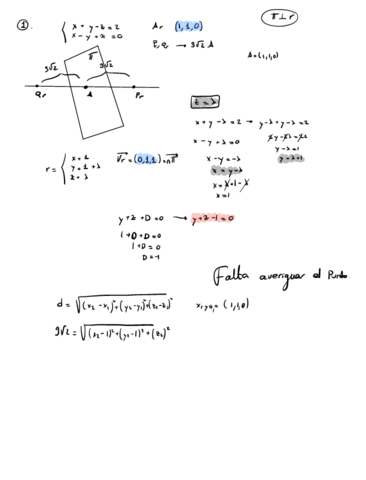 ① { x + y - z = 2
x - y + z = 0
Ar (1,1,0)
π ⊥ r
P, Q → 9√2 A
A = (1,1,0)
π
9√2 9√2
Qr A Pr
z = λ
x + y - λ = 2 → y - λ + y - λ = 2
x - y + λ = 0
x - y = -λ
y - λ = 1
x = y - λ
y = λ + 1
x = λ + 1 - λ
x = 1
r = { x = 1
y = 1 + λ
z = λ
Vr = (0,1,1) = nπ
y + z + D = 0 → y + z - 1 = 0
1 + 0 + D = 0
1 + D = 0
D = -1
Falta averiguar el Punto
d = √(x₂ - x₁)² + (y₂ - y₁)² + (z₂ - z₁)²
x₁ y₁ z₁ = (1,1,0)
9√2 = √(x₂ - 1)² + (y₂ - 1)² + (z₂)²